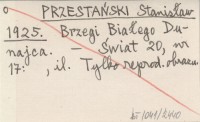 PRZESTAŃSKI Stanisław
1925. Brzegi Białego Du-
najca. — Świat 20, nr
17: , il. Tylko reprod. obrazu.